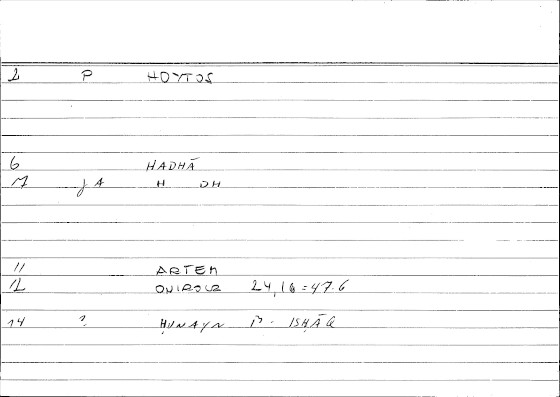 2 P HOYTOS
6 HADHĀ
M J A H DH
11 ARTEM
12 ONIROCR 24,16 = 47.6
14 ? ḤUNAYN B. ISḤĀQ